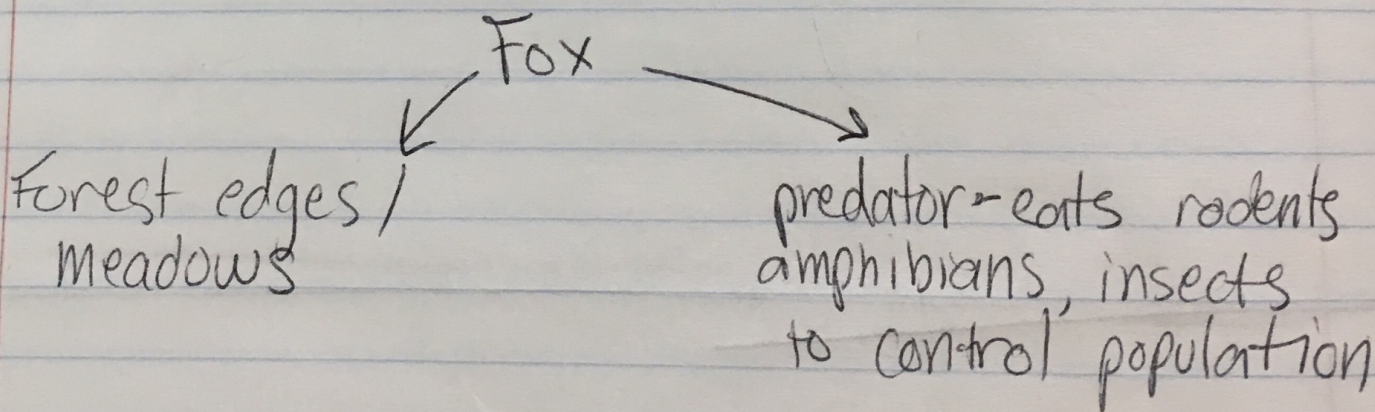 Fox
Forest edges/
meadows
predator-eats rodents
amphibians, insects
to control population